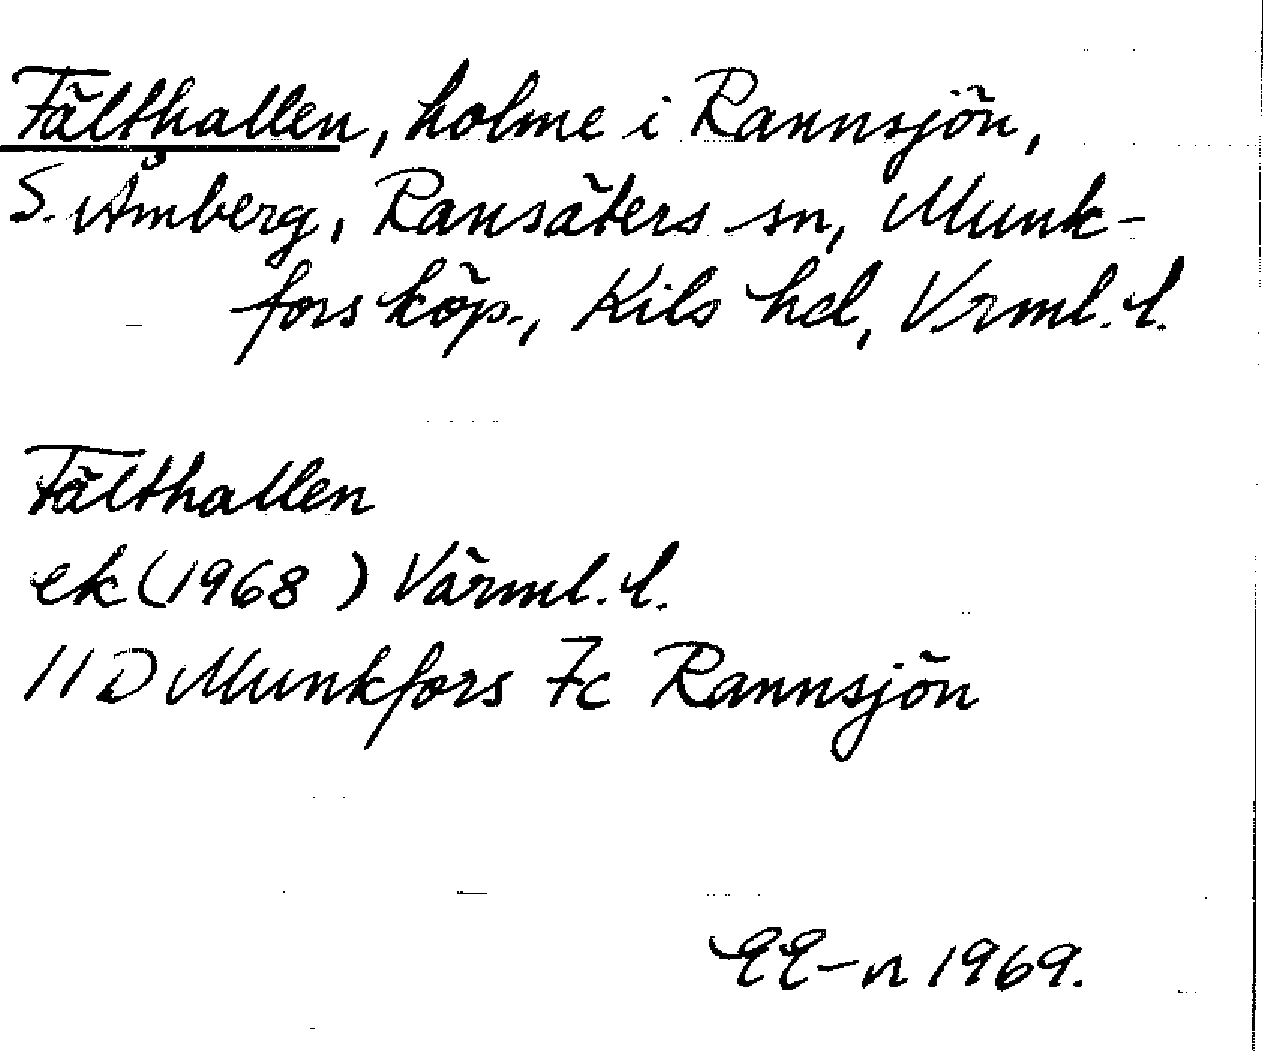 Fälthallen, holme i Rannsjön,
S. Åmberg, Ransäters sn, Munk-
fors köp., Kils hd, Vrml. l.
Fälthallen
ek (1968) Värml. l.
11D Munkfors 7c Rannsjön
EE-n 1969.